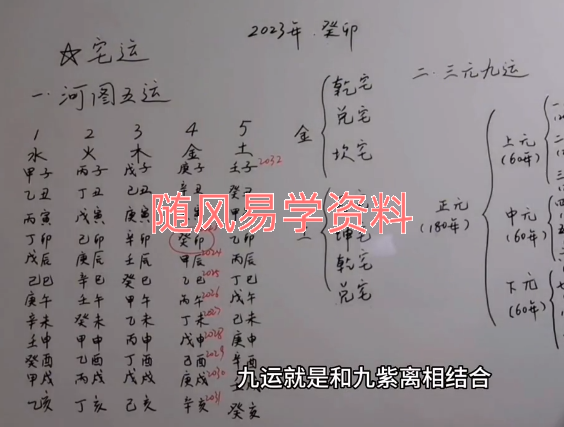 2023年.癸卯
☆宅运
一.河图五运
1 2 3 4 5
水 火 木 金 土
甲子 丙子 戊子 庚子 壬子 2032
乙丑 丁丑 己丑 辛丑 癸丑
丙寅 戊寅 庚寅
丁卯 己卯 辛卯 癸卯 乙卯
戊辰 庚辰 壬辰 甲辰 2024
己巳 辛巳 癸巳 乙巳 2025 丁巳
庚午 壬午 甲午 丙午 2026 戊午
辛未 癸未 乙未 丁未 2027 己未
壬申 甲申 丙申 戊申 2028 庚申
癸酉 乙酉 丁酉 己酉 2029 辛酉
甲戌 丙戌 戊戌 庚戌 2030
乙亥 丁亥 己亥 辛亥 2031 癸亥
金
乾宅
兑宅
坎宅
坤宅
乾宅
兑宅
二.三元九运
正元
(180年)
上元
(60年)
中元
(60年)
下元
(60年)
随风易学资料
九运就是和九紫离相结合